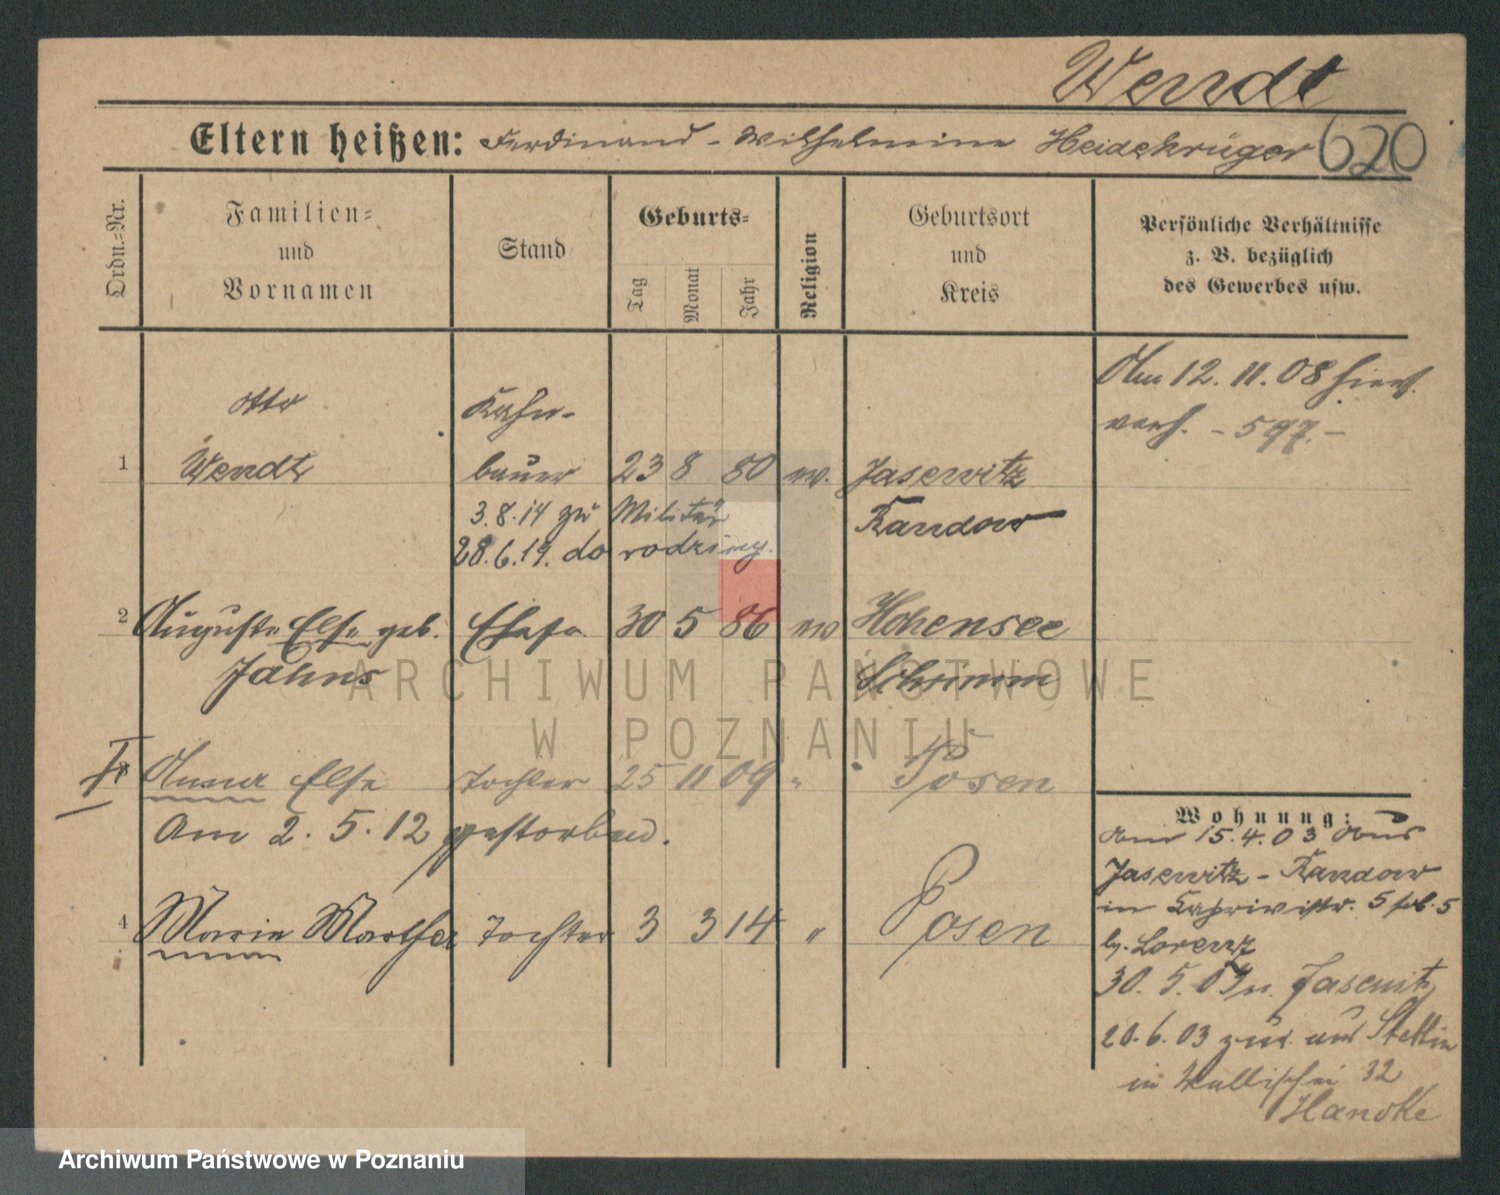 Wendt
Eltern heißen: Ferdinand - Wilhelmine Heidekrüger 620
Ordn.=Nr.
Familien=
und
Vornamen
Stand
Geburts=
Tag
Monat
Jahr
Religion
Geburtsort
und
Kreis
Persönliche Verhältnisse
z. B. bezüglich
des Gewerbes usw.
Am 12. 11. 08 hier
verh. - 597. -
Otto Kahn-
1 Wendt bauer 23 8 80 ev. Jasenitz
3.8.14 zu Militär Randow
28.6.19. do rodziny.
2 Auguste Else geb. Ehefr. 30 5 86 ev Hohensee
Jahns Schrimm
† Anna Else Tochter 25 11 09 " Posen
Am 2. 5. 12 gestorben.
4 Marie Martha Tochter 3 3 14 " Posen
Wohnung:
am 15. 4. 03 aus
Jasenitz - Randow
in Kaprivistr. 5 5
b. Lorenz
30. 5. 03 n. Jasenitz
20. 6. 03 zur. aus Stettin
in Wallischei 32
Hanske
ARCHIWUM PAŃSTWOWE
W POZNANIU
Archiwum Państwowe w Poznaniu